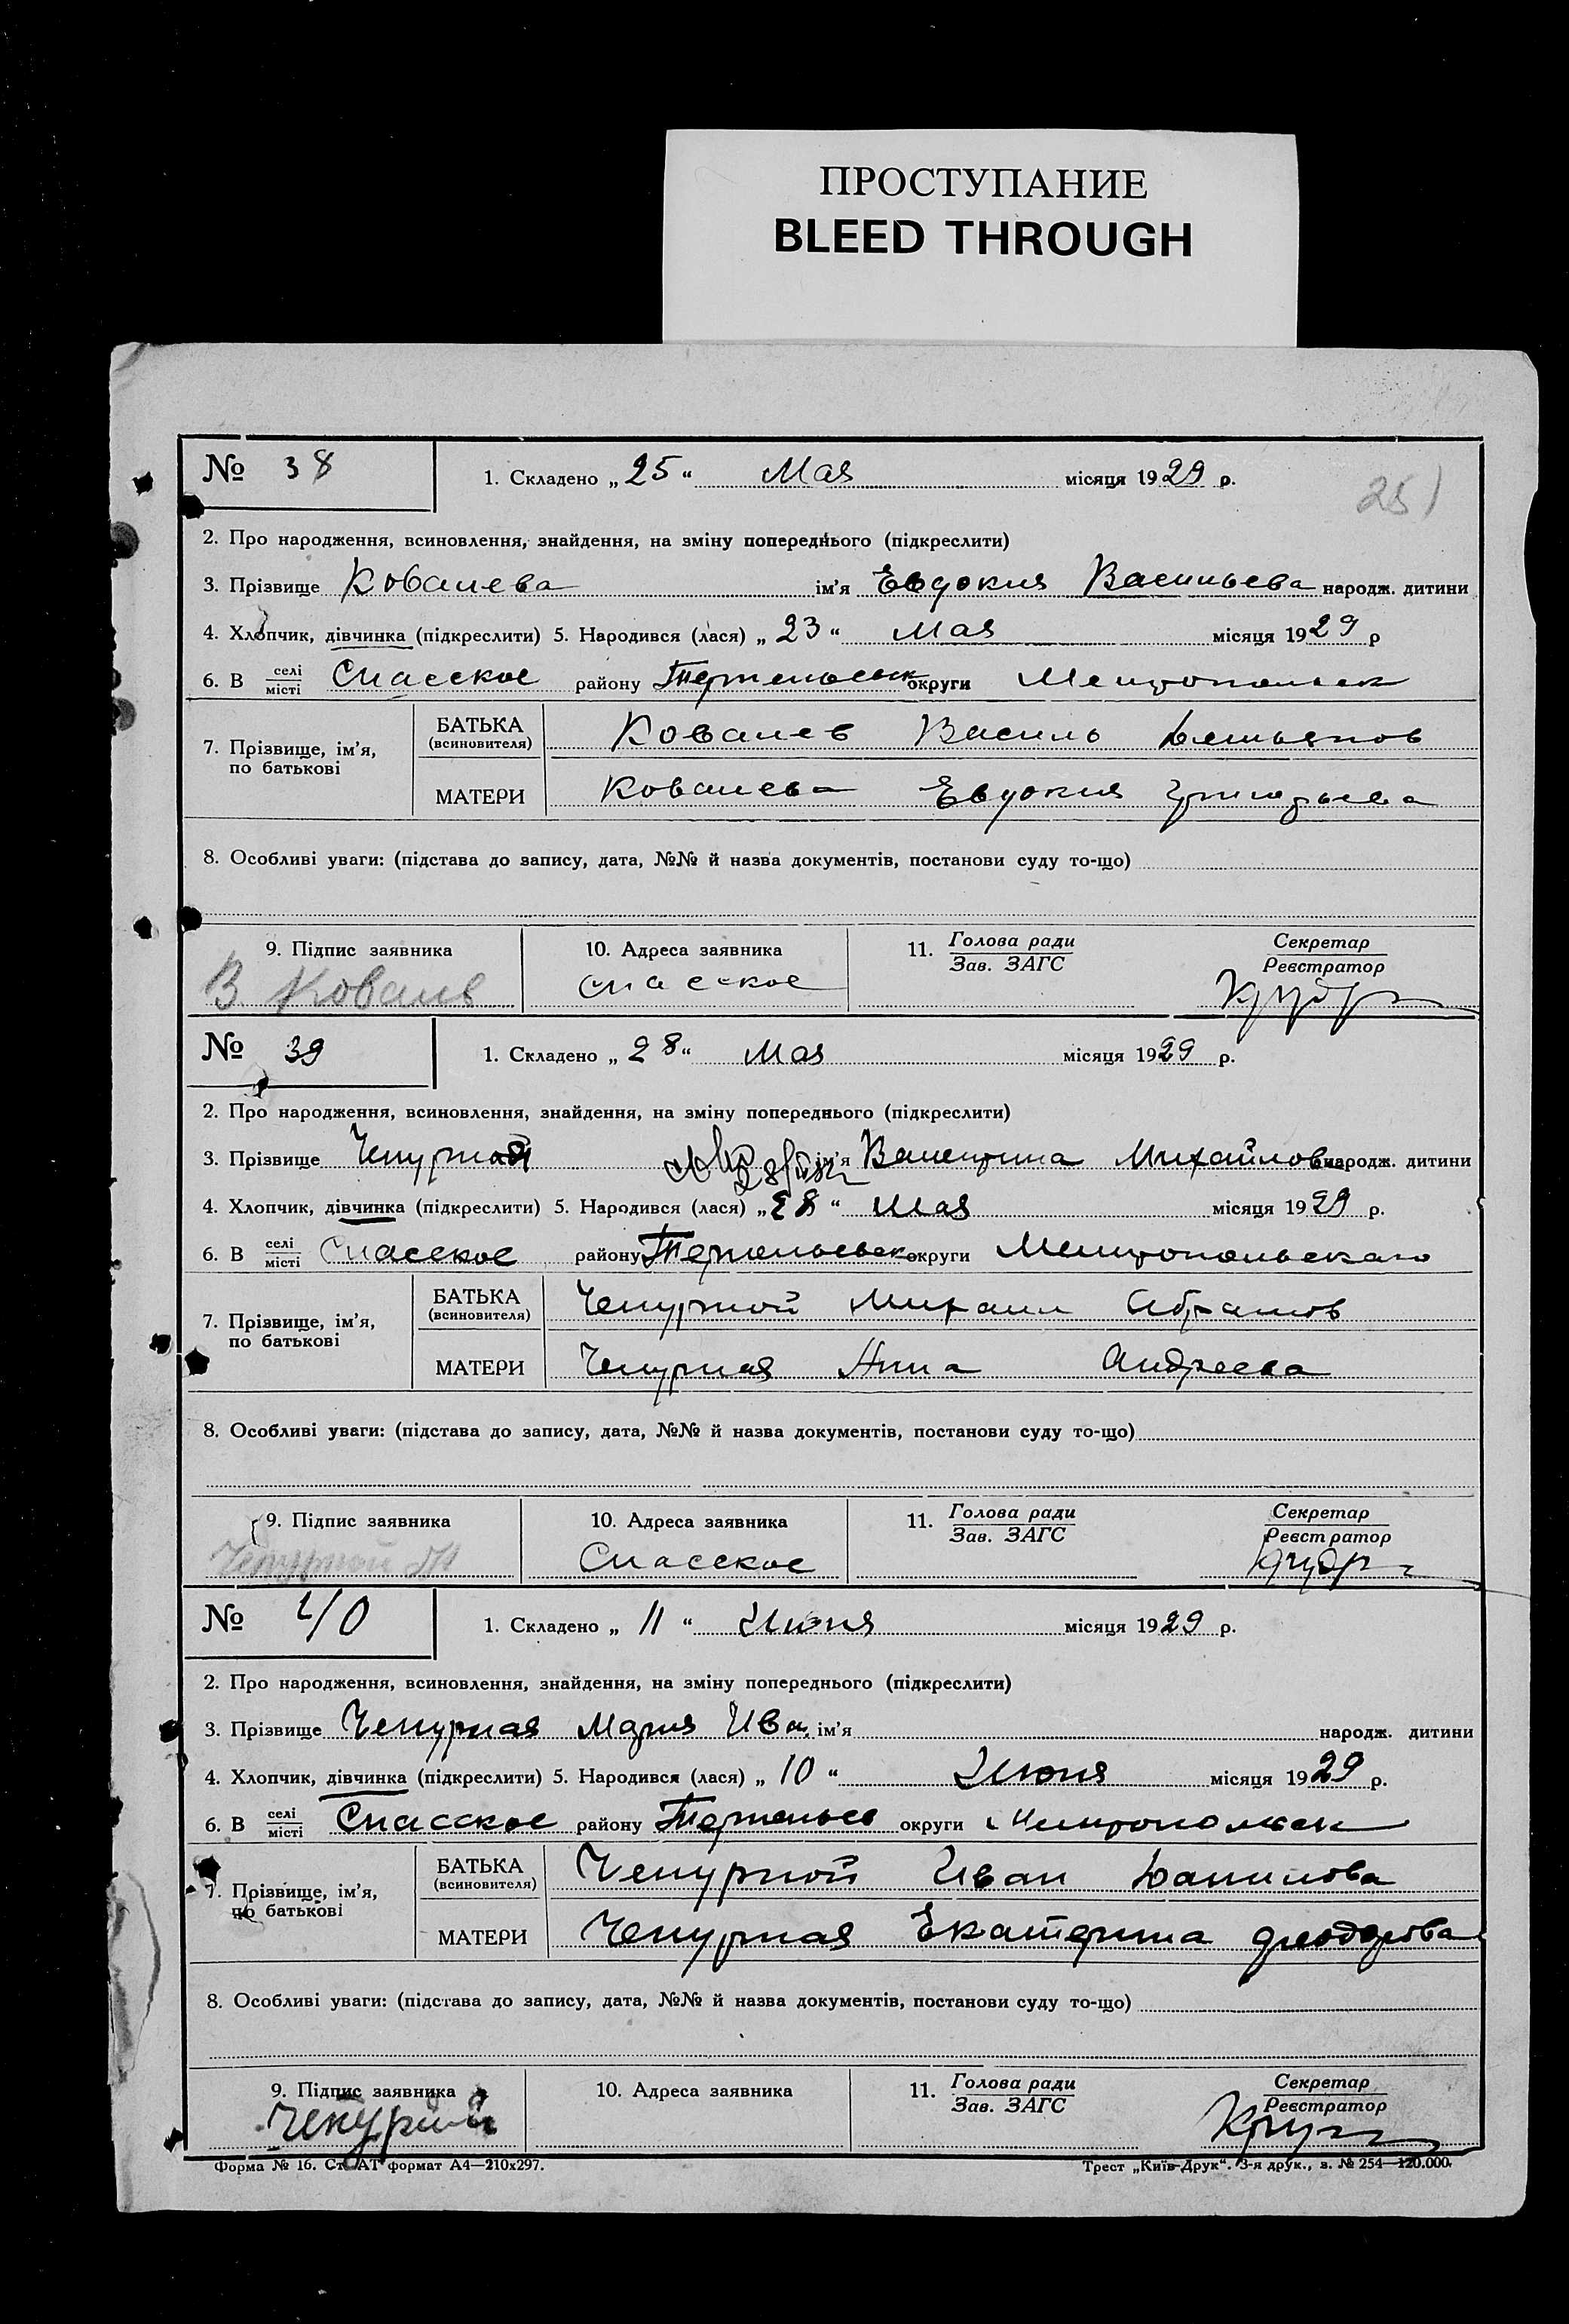 ПРОСТУПАНИЕ
BLEED THROUGH
251
№ 38 1. Складено „ 25 “ Мая місяця 1929 р.
2. Про народження, всиновлення, знайдення, на зміну попереднього (підкреслити)
3. Прізвище Ковалева ім’я Евдокия Васильева народж. дитини
4. Хлопчик, дівчинка (підкреслити) 5. Народився (лася) „ 23 “ Мая місяця 1929 р
6. В селі/місті Спасское району округи Мелитопольск
7. Прізвище, ім’я, по батькові
БАТЬКА (всиновителя) Ковалев Василь Демьянов
МАТЕРИ Ковалева Евдокия Григорьева
8. Особливі уваги: (підстава до запису, дата, №№ й назва документів, постанови суду то-що)
9. Підпис заявника 10. Адреса заявника 11. Голова ради/Зав. ЗАГС Секретар/Реєстратор
В Ковалев Спасское
№ 39 1. Складено „ 28 “ Мая місяця 1929 р.
2. Про народження, всиновлення, знайдення, на зміну попереднього (підкреслити)
3. Прізвище Чепурная ім’я Валентина Михайловна народж. дитини
4. Хлопчик, дівчинка (підкреслити) 5. Народився (лася) „ 28 “ Мая місяця 1929 р.
6. В селі/місті Спасское району округи Мелитопольскаго
7. Прізвище, ім’я, по батькові
БАТЬКА (всиновителя) Чепурной Михаил Абрамов
МАТЕРИ Чепурная Анна Андреева
8. Особливі уваги: (підстава до запису, дата, №№ й назва документів, постанови суду то-що)
9. Підпис заявника 10. Адреса заявника 11. Голова ради/Зав. ЗАГС Секретар/Реєстратор
Чепурной Спасское
№ 40 1. Складено „ 11 “ Июня місяця 1929 р.
2. Про народження, всиновлення, знайдення, на зміну попереднього (підкреслити)
3. Прізвище Чепурная Мария Ива. ім’я народж. дитини
4. Хлопчик, дівчинка (підкреслити) 5. Народився (лася) „ 10 “ Июня місяця 1929 р.
6. В селі/місті Спасское району округи Мелитопольск
7. Прізвище, ім’я, по батькові
БАТЬКА (всиновителя) Чепурной Иван Данилова
МАТЕРИ Чепурная Екатерина Феодорова
8. Особливі уваги: (підстава до запису, дата, №№ й назва документів, постанови суду то-що)
9. Підпис заявника 10. Адреса заявника 11. Голова ради/Зав. ЗАГС Секретар/Реєстратор
Чепурной
Форма № 16. Ст. АТ формат А4—210х297. Трест „Київ-Друк“. 3-я друк., з. № 254—120.000.